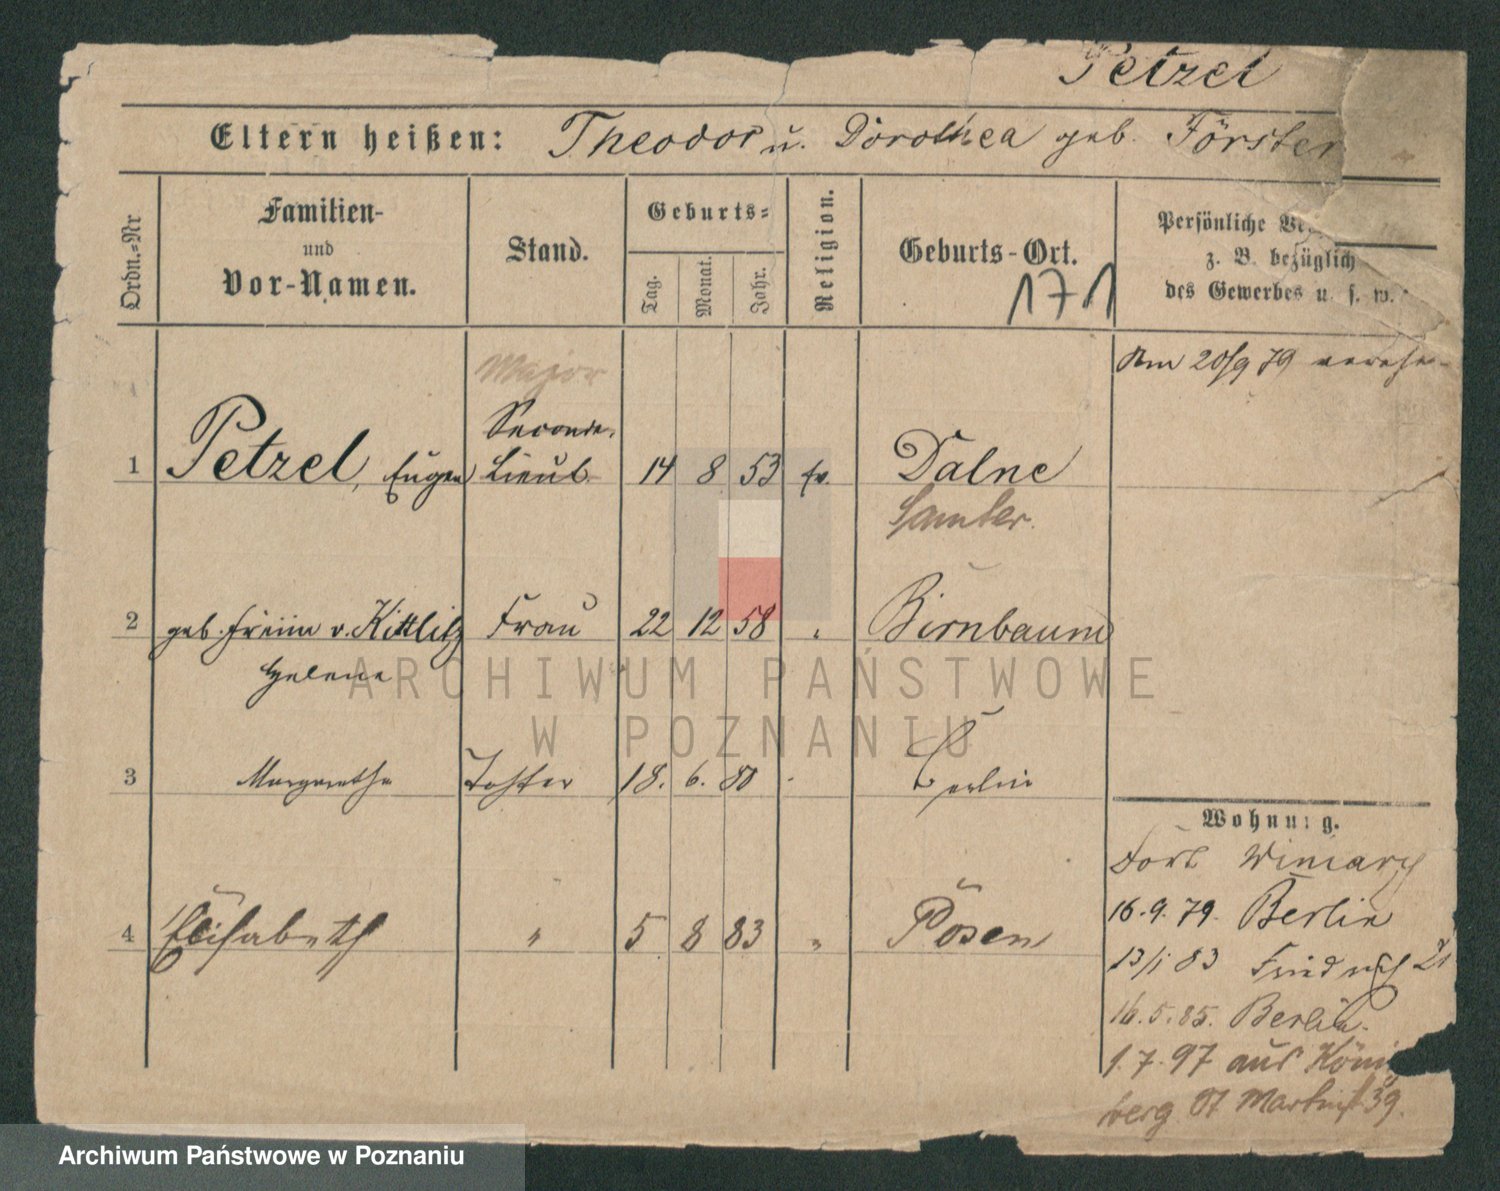 Petzel
Eltern heißen: Theodor u. Dorothea geb. Förster
Ordn.-Nr
Familien-
und
Vor-Namen.
Stand.
Geburts-
Tag.
Monat.
Jahr.
Religion.
Geburts-Ort.
171
Persönliche
z. B. bezüglich
des Gewerbes u. s. w.
Am 20/9 79 verehe-
Major
Seconde-
1 Petzel, Eugen Lieut. 14 8 53 ev. Dalne
Samter.
2 geb. Freiin v. Kittlitz Frau 22 12 58 " Birnbaum
Helene
ARCHIWUM PAŃSTWOWE
W POZNANIU
3 Margarethe Tochter 18. 6. 80 Berlin
4 Elisabeth " 5 8 83 " Posen
Wohnung.
Fort Winiary
16.9.79. Berlin
13/1 83 Friedrich 21
16.5.85. Berlin.
1.7.97 aus Köni
berg St Martinst 39.
Archiwum Państwowe w Poznaniu